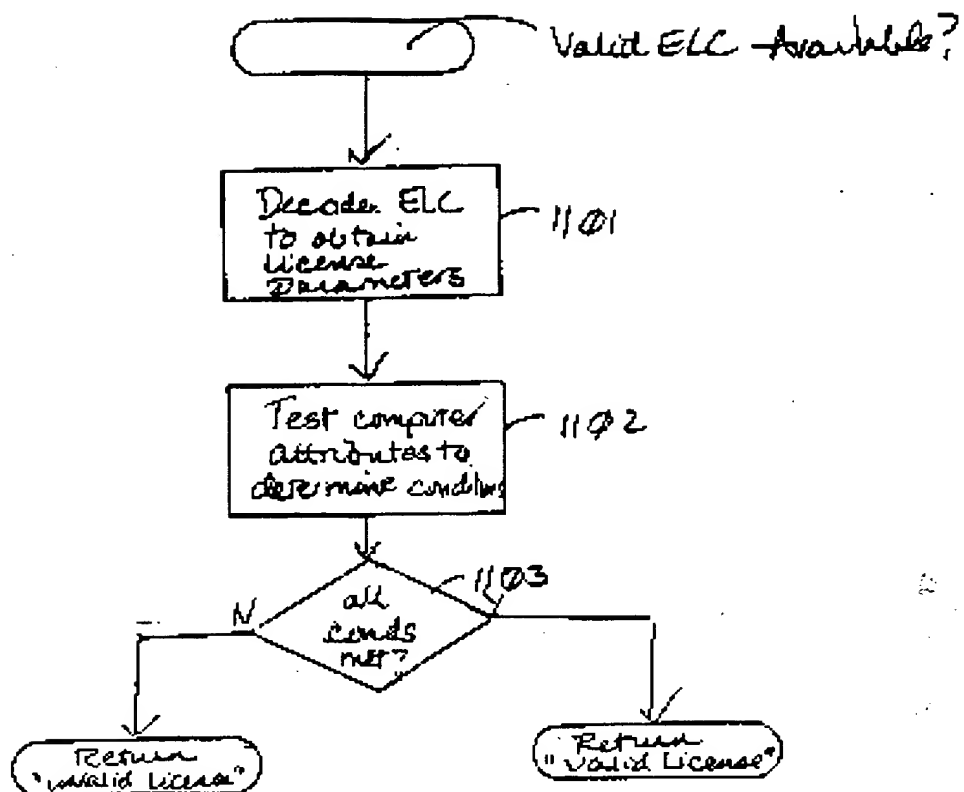 Valid ELC Available?
Decode ELC
to obtain
License
Parameters
1101
Test computer
attributes to
determine conditions
1102
1103
all
conds
met?
N
Return
"invalid License"
Return
"valid License"